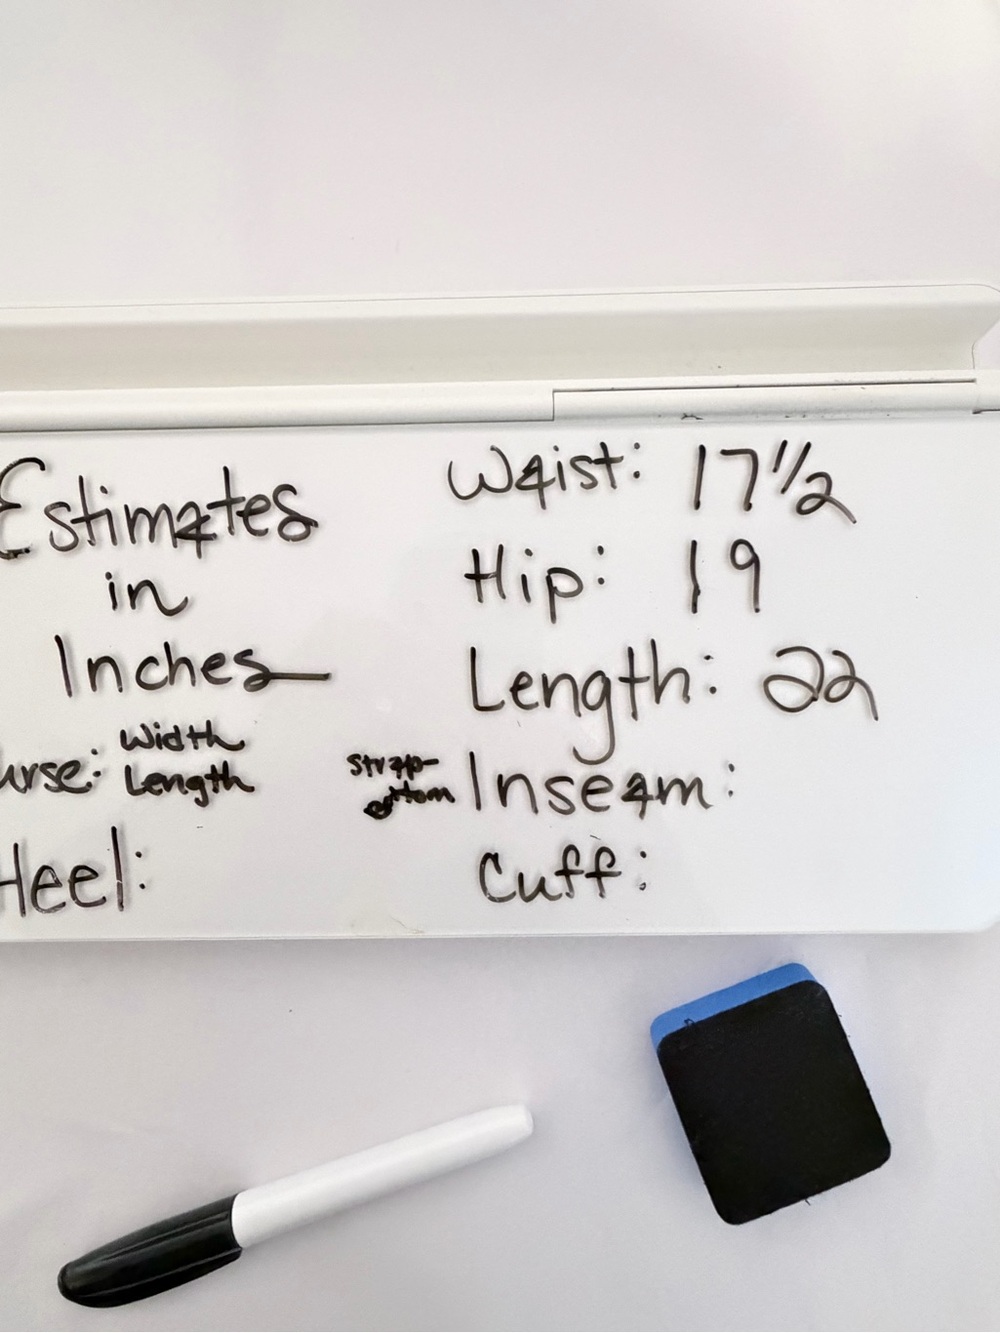 Estimates
in
Inches
Width
urse: Length
Heel:
Waist: 17 1/2
Hip: 19
Length: 22
strap-
Inseam:
Cuff: